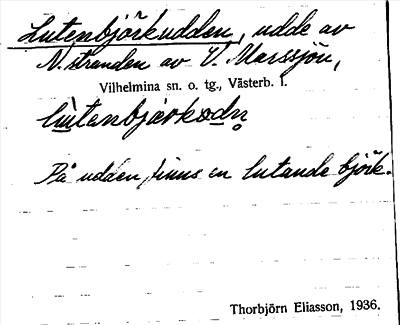 Lutenbjörkudden, udde av
N. stranden av V. Marssjön,
Vilhelmina sn. o. tg., Västerb. l.
På udden finns en lutande björk.
Thorbjörn Eliasson, 1936.